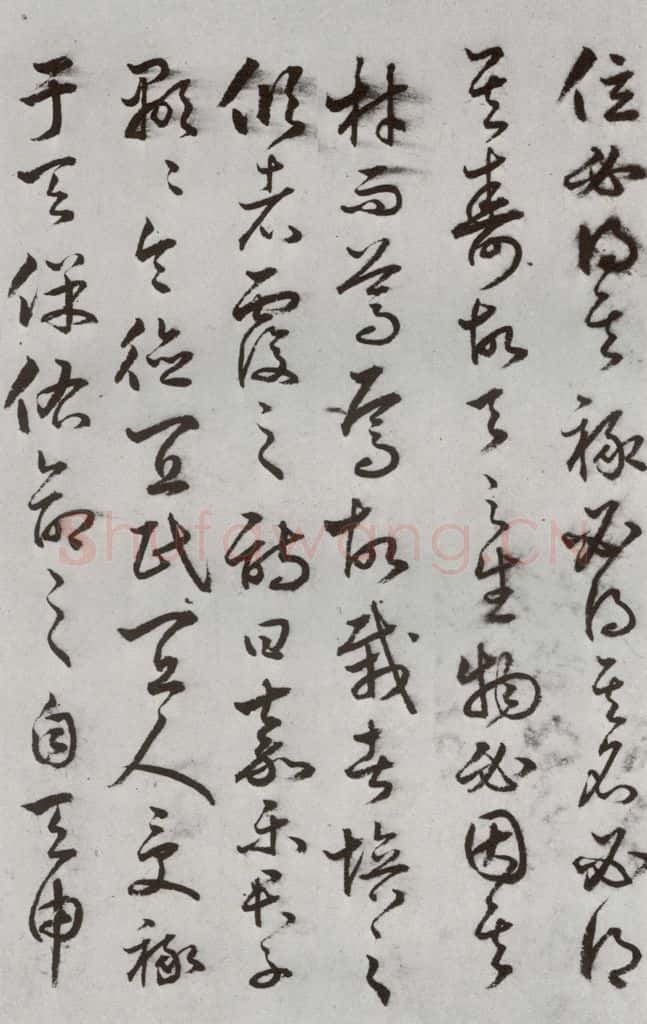 位必得其祿必得其名必得
其壽故天之生物必因其
材而篤焉故栽者培之
傾者覆之詩曰嘉樂君子
顯〻令德宜民宜人受祿
于天保佑命之自天申
Shufawang.CN